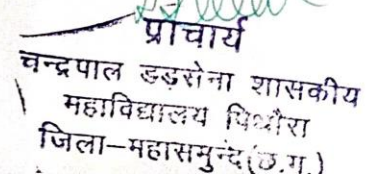 प्राचार्य
चन्द्रपाल डड़सेना शासकीय
महाविद्यालय पिथौरा
जिला–महासमुन्द(छ.ग.)